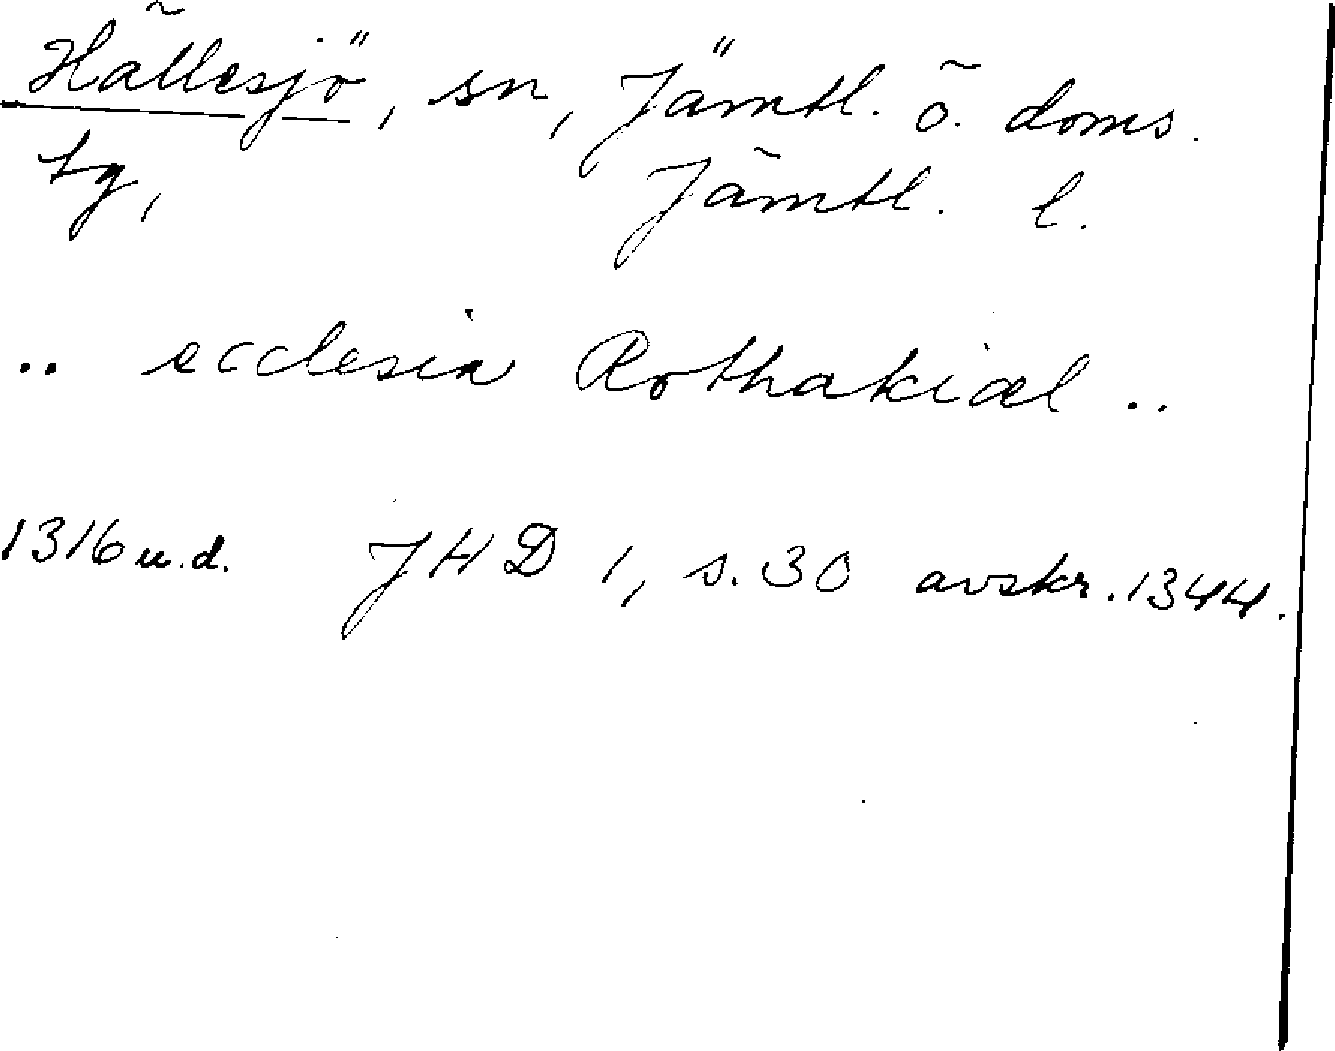 Hällesjö, sn, Jämtl. ö. doms.
tg, Jämtl. l.
.. ecclesia Rothakiæl ..
1316 u.d. JHD 1, s. 30 avskr. 1344.